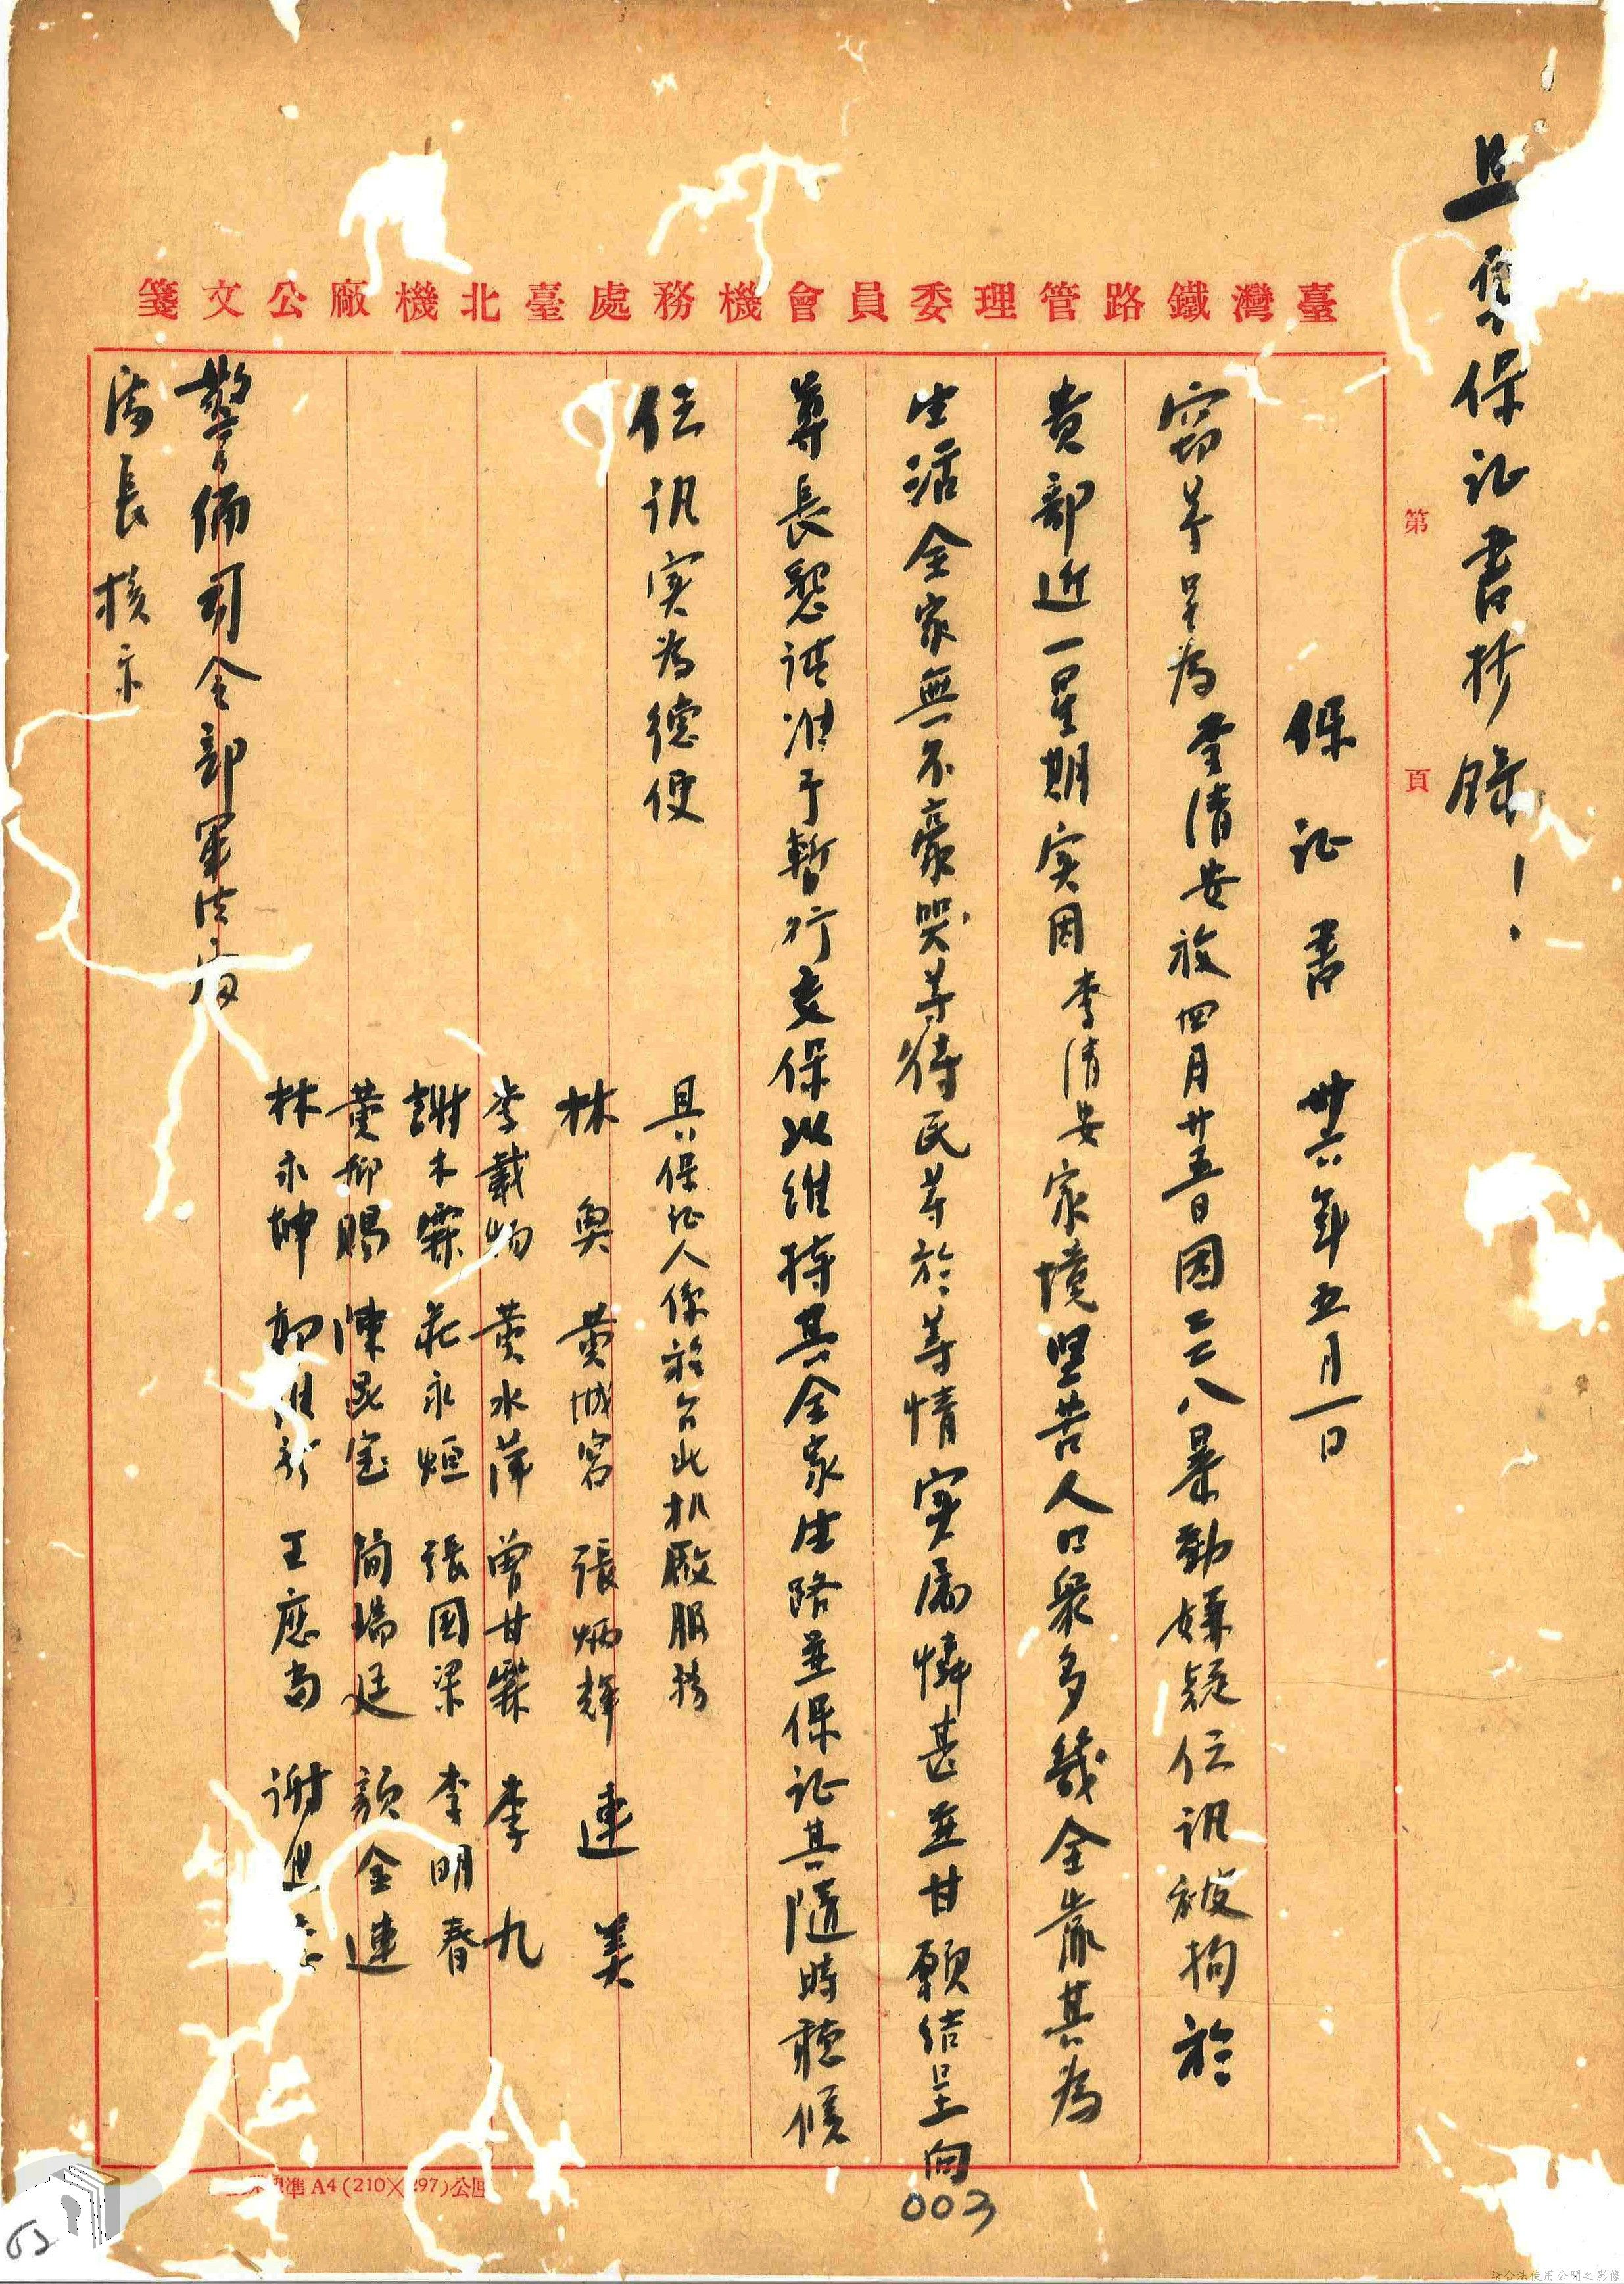 臺灣鐵路管理委員會機務處臺北機廠公文箋
第 頁
保証書抄錄！
保証書 卅六年五月一日
竊等呈為李清安被四月廿五日因二二八暴動嫌疑传讯被拘於
貴部近一星期实因李清安家境坚苦人口衆多幾全靠其為
生活全家無不豪哭等待民等於等情实属憐甚並甘願结呈向
尊長懇請准予暫行交保以维持其全家生路並保证其隨時聽候
传讯实為德便
具保证人係於台北机廠服務
林 奥 黄城宮 張炳輝 連 美
李載炳 黄水萍 曾甘霖 李 九
謝木霖 莊永烜 張国梁 李明春
黄抑賜 陳昆宝 简瑞廷 顏金連
林永坤 王應 謝
警偹司令部軍法處
處長 核示
準A4(210×297)公
003